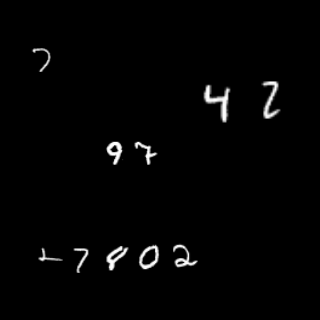 7
42
97
+7802